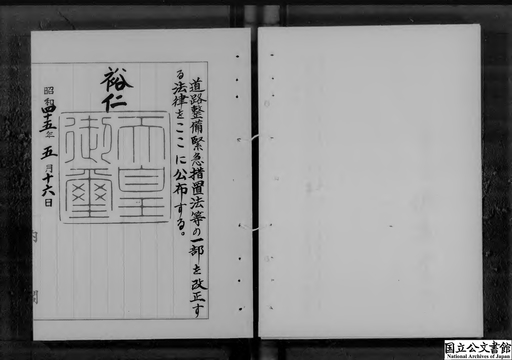 道路整備緊急措置法等の一部を改正す
る法律をここに公布する。
裕仁
天皇御璽
昭和四十五年五月十六日
内閣
国立公文書館
National Archives of Japan